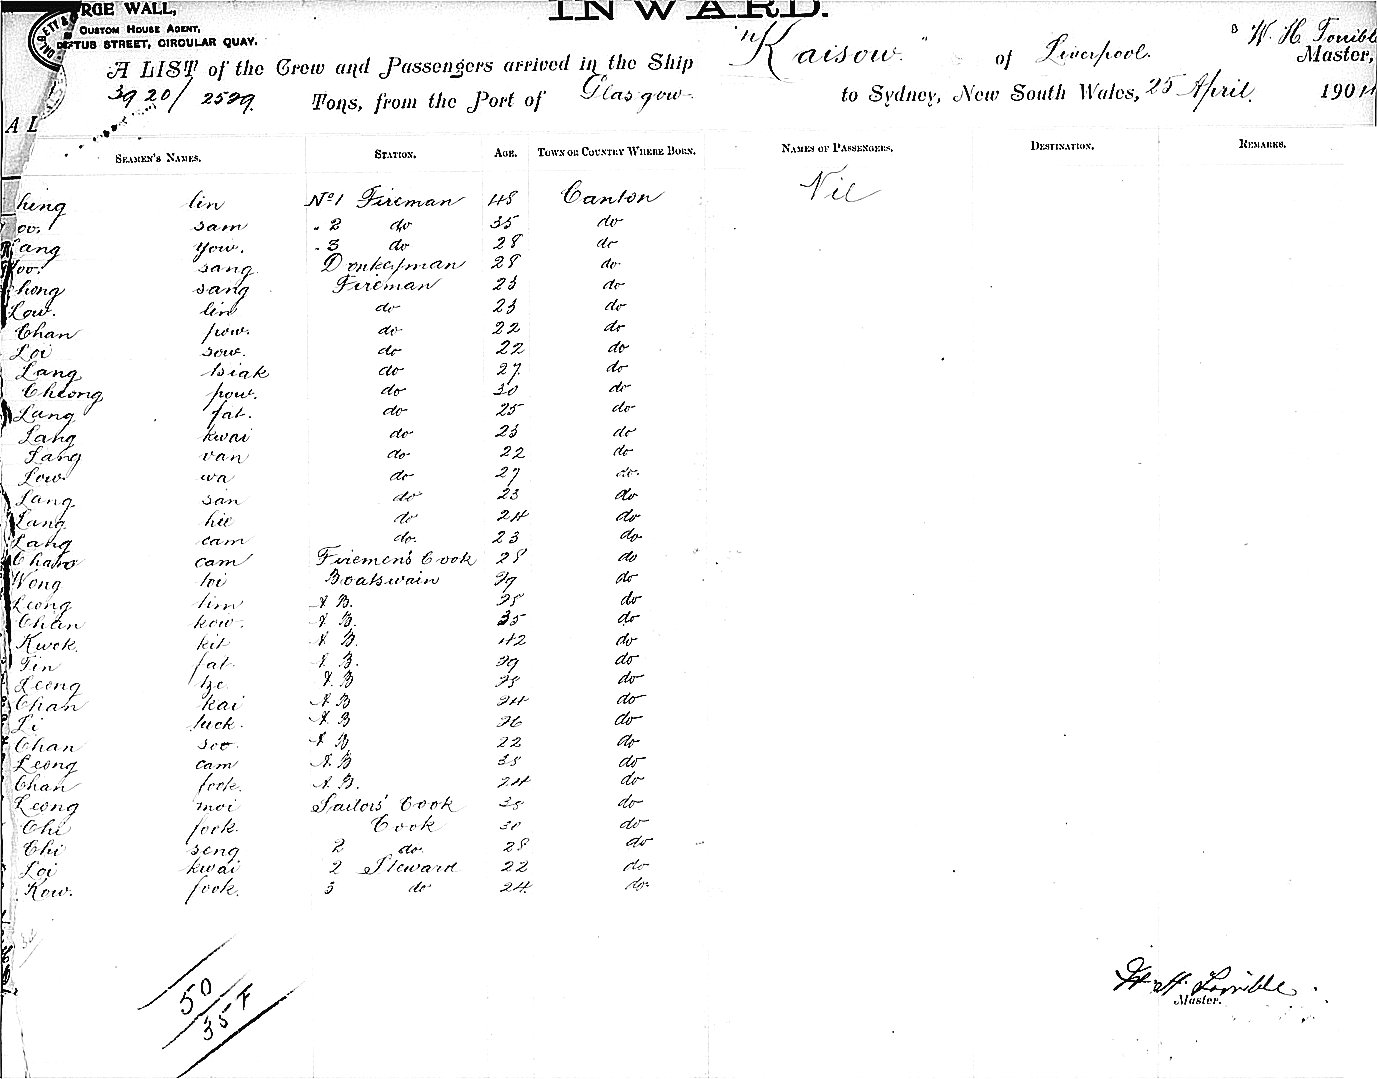 INWARD.
RGE WALL,
CUSTOM HOUSE AGENT,
FTUS STREET, CIRCULAR QUAY.
A LIST of the Crew and Passengers arrived in the Ship "Kaisow" of Liverpool. W. H. Torrible Master,
3920/2529 Tons, from the Port of Glasgow to Sydney, New South Wales, 25 April. 190
A L
SEAMEN'S NAMES. STATION. AGE. TOWN OR COUNTRY WHERE BORN. NAMES OF PASSENGERS. DESTINATION. REMARKS.
hing lin No 1 Fireman 48 Canton Nil
oo. sam " 2 do 35 do
ang yow. " 3 do 28 do
oo. sang Donkeyman 28 do
hong sang Fireman 23 do
Low. lin do 23 do
Chan pow. do 22 do
Loi sow. do 22 do
Lang tsiak do 27 do
Cheong pow. do 30 do
Lang fat. do 25 do
Lang kwai do 23 do
Lang van do 22 do
Low wa do 27 do
Lang san do 23 do
Lang hie do 24 do
Lang cam do. 23 do
cam Firemen's Cook 28 do
Wong loi Boatswain 29 do
Leong lim A.B. 28 do
Chan kow. A.B. 35 do
Kwok kit A.B. 42 do
Tin fat A.B. 29 do
Leong tze A.B 28 do
Chan kai A.B 24 do
Li luck. A.B 26 do
Chan soo A.B 22 do
Leong cam A.B 38 do
Chan fook A.B. 24 do
Leong moi Sailors' Cook 38 do
Chi fook. Cook 30 do
Chi seng 2 do. 28 do
Loi kwai 2 Steward 22 do
Kow. fook. 3 do 24 do
50
35 F
W. H. Torrible
Master.